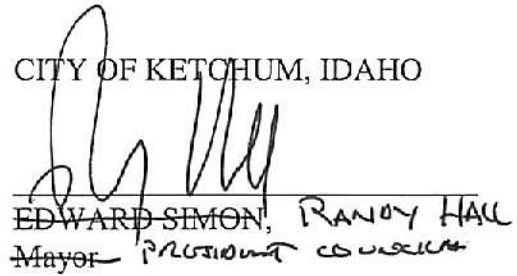 CITY OF KETCHUM, IDAHO
EDWARD SIMON, RANDY HALL
Mayor PRESIDENT